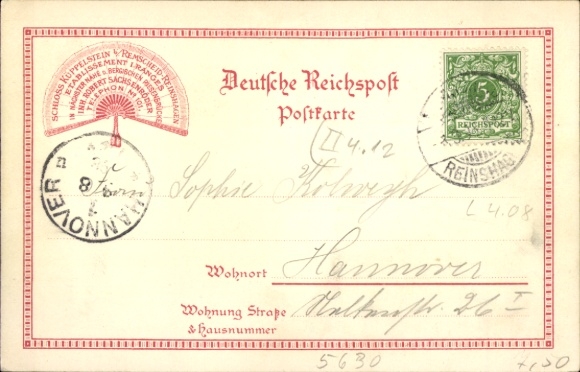 SCHLOSS KÜPPELSTEIN b/ REMSCHEID-REINSHAGEN
ETABLISSEMENT I. RANGES
IN NÄCHSTER NÄHE D. BERGISCHEN RIESENBRÜCKE
INH. ROBERT SACHSENRÖDER
TELEPHON No 101.
Deutsche Reichspost
Postkarte
5
REICHSPOST
REINSHAG
II 4.12
HANNOVER
8
Sophie
L 4.08
Wohnort Hannover
Wohnung Straße 26 I
& Hausnummer
5630